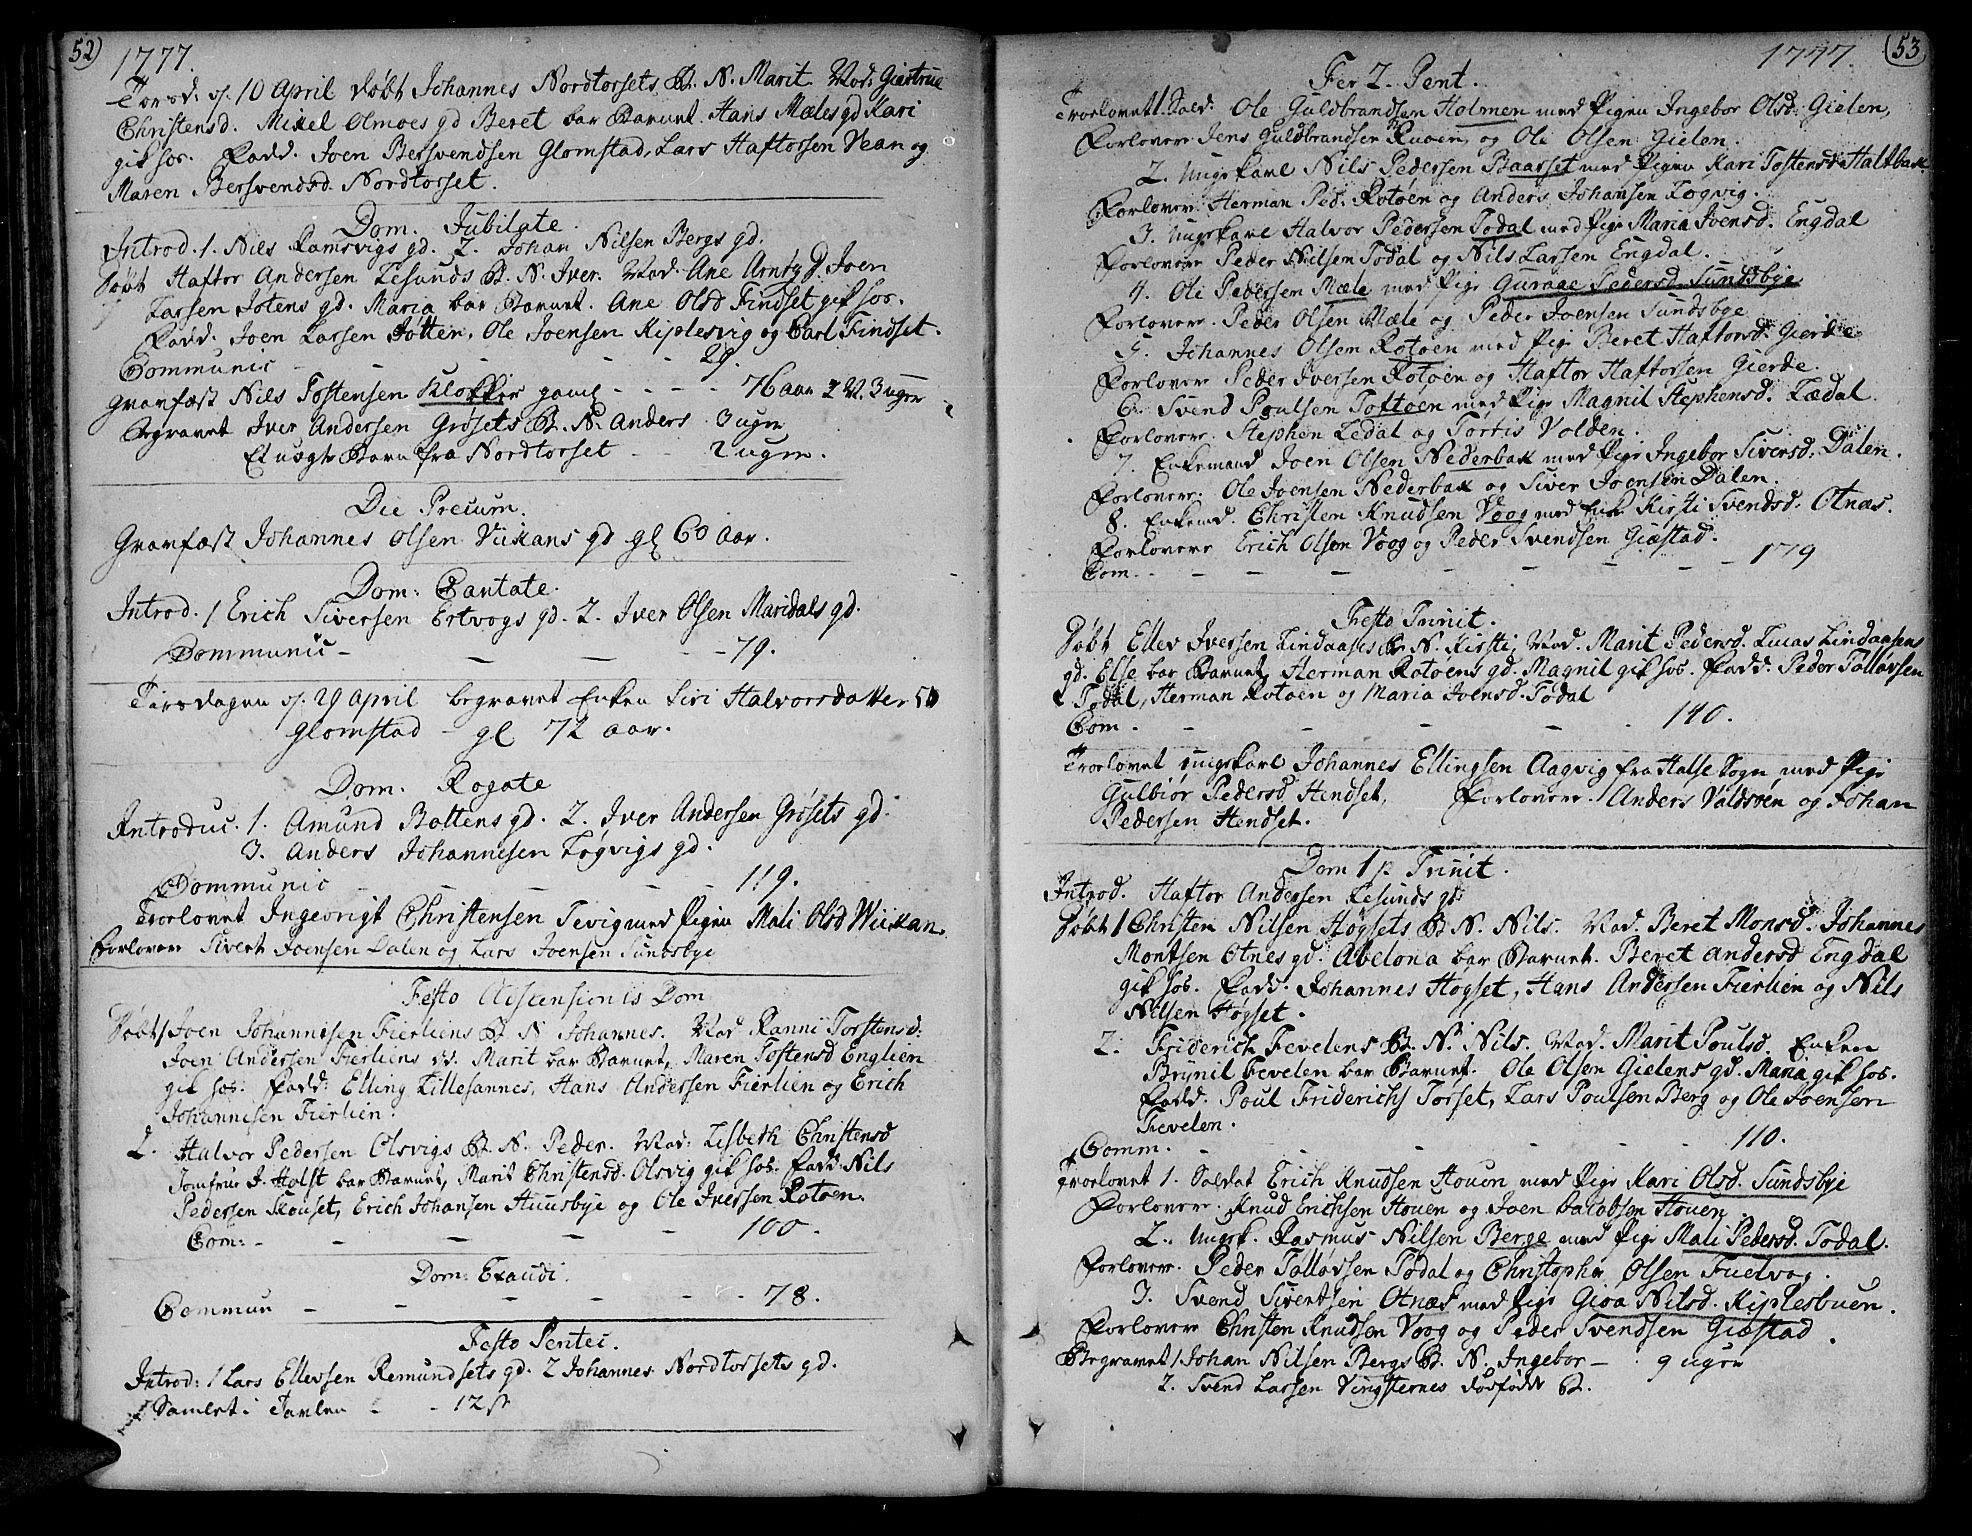 52)
1777.
Torsd: d. 10 April døbt Johannes Nordtorsets B. N. Marit. Mod: Giertrue
Christensd. Mikel Olmoes gd Beret bar Barnet. Hans Mæles gd Kari
gik hos. Fadd. Joen Bersvendsen Glomstad, Lars Haftorsen Vean og
Maren Bersvendsd. Nordtorset.
Dom. Jubilate.
Introd. 1. Nils Ramsvigs gd. 2. Johan Nilsen Bergs gd.
Døbt Haftor Andersen Lesunds B. N. Iver. Mod. Ane Arnøg D. Joen
Larsen Jotens gd. Maria bar Barnet. Ane Olsd Findset gik hos.
Fadd. Joen Larsen Jøtten, Ole Joensen Kiplesvig og Carl Findset.
Communic - - - - 29.
Gravfæst Nils Tostensen Klokker gaml - - - - 76 aar 2 M. 3 uger
Begravet Iver Andersen Grøsets B. N. Anders 3 uger
Et uægte Barn fra Nordtorset - - 2 uger.
Die Precum.
Gravfæst Johannes Olsen Viikans gd gl 60 aar.
Dom: Cantate.
Introd. 1 Erich Siversen Ertvogs gd. 2. Iver Olsen Maridals gd.
Communic - - - - 79.
Tirsdagen d. 29 April begravet Enken Siri Halvorsdatter
Glomstad - gl 72 aar.
Dom. Rogate
Introduc. 1. Amund Bottens gd. 2. Iver Andersen Grøsets gd.
3. Anders Johannesen Løgvigs gd.
Communic - - - - 119.
Trolovet Ingebrigt Christensen Tevig med Pigen Mali Olsd Wiikan.
Forlovere Sivert Joensen Dalen og Lars Joensen Sundsbye
Festo Adscensionis Dom
Døbt 1 Joen Johannesen Fierliens B N Johannes. Mod Ranni Torstensd.
Joen Andersen Fierliens gd. Marit bar Barnet, Maren Tostensd Englien
gik hos. Fadd: Elling Lillesannes, Hans Andersen Fierlien og Erich
Johannesen Fierlien.
2. Halvor Pedersen Olsvigs B. N. Peder. Mod: Lisbeth Christensd
Jomfrue J. Holst bar Barnet, Marit Christensd. Olsvig gik hos. Fadd. Nils
Pedersen Skouset, Erich Johansen Huusbye og Ole Iversen Rotøen.
Com: - - - - - 100.
Dom: Exaudi.
Commun - - - - - 78.
Festo Pentec.
Introd: 1 Lars Ellevsen Remundsets gd. 2 Johannes Nordtorsets gd.
Samlet i Tavlen - - 12 ß
1777. (53
Fer 2. Pent.
Trolovet 1. Sold. Ole Guldbrandsen Holmen med Pigen Ingebor Olsd. Gielen,
Forlovere Jens Guldbrandsen Ruøen, og Ole Olsen Gielen.
2. Ungekarl Nils Pedersen Baarset med Pigen Kari Tostensd Haltbak
Forlovere Herman Ped. Rotøen og Anders Johansen Løgvig.
3. Ungekarl Halvor Pedersen Todal med Pige Maria Joensd. Engdal
Forlovere Peder Nielsen Todal og Nils Larsen Engdal.
4. Ole Pedersen Mæle med Pige Guruae Pedersd. Sundsbye
Forlovere. Peder Olsen Mæle og Peder Joensen Sundsbye
5. Johannes Olsen Rotøen med Pige Beret Haftorsd. Gierde
Forlovere Peder Iversen Rotøen og Haftor Haftorsen Gierde.
6. Svend Poulsen Tottøen med Pige Magnil Stephensd. Lædal.
Forlovere. Stephen Ledal og Tortis Volden.
7. Enkemand Joen Olsen Nederbak med Pige Ingebor Siversd. Dalen.
Forlovere: Ole Joensen Nederbak og Siver Joensen Dalen.
8. Enkemd. Christen Knudsen Voog med Enke Kirsti Svendsd. Otnæs.
Forlovere Erich Olsen Voog og Peder Svendsen Giæstad.
Com. - - - - - - - 179
Festo Trinit.
Døbt Ellev Iversen Lindaases B. N. Kirsti, Mod. Marit Pedersd. Lucas Lindaasens
gd. Else bar Barnet, Herman Rotøens gd. Magnil gik hos. Fadd: Peder Tolløvsen
Todal, Herman Rotøen og Maria Joensd. Todal
Com. - - - - - 140.
Trolovet ungekarl Johannes Ellingsen Aagvig fra Halse Sogn, med Pige
Gulbiør Pedersd Hendset. Forlovere. Anders Valdsøen og Johan
Pedersen Hendset.
Dom 1 p. Trinit.
Introd. Haftor Andersen Lesunds gd.
Døbt 1 Christen Nilsen Høgsets B N. Nils. Mod. Beret Monsd. Johannes
Montsen Otnes gd. Abelona bar Barnet. Beret Andersd Engdal
gik hos. Fadd. Johannes Høgset, Hans Andersen Fierlien og Nils
Nilsen Høgset.
2. Friderich Fevelens B. N. Nils. Mod. Marit Poulsd. Enken
Brynil Fevelen bar Barnet. Ole Olsen Gielens gd. Maria gik hos.
Fadd. Poul Friderichs Torset, Lars Poulsen Berg og Ole Joensen
Fevelen.
Comm. - - - - - 110.
Trolovet 1. Soldat Erich Knudsen Houen med Pige Kari Olsd. Sundsbye
Forlovere. Knud Erichsen Houen og Joen Jacobsen Houen.
2. Ungk. Rasmus Nilsen Berge med Pige Mali Pedersd. Todal.
Forlovere. Peder Tolløvsen Todal og Christopher Olsen Fuelvog.
3. Svend Sivertsen Otnæs med Pige Gioa Nilsd. Kiplesbuen.
Forlovere Christen Knudsen Voog og Peder Svendsen Giæstad.
Begravet 1. Johan Nilsen Bergs B. N. Ingebor - 9 uger
2. Svend Larsen Vingsternes dødfødt B.